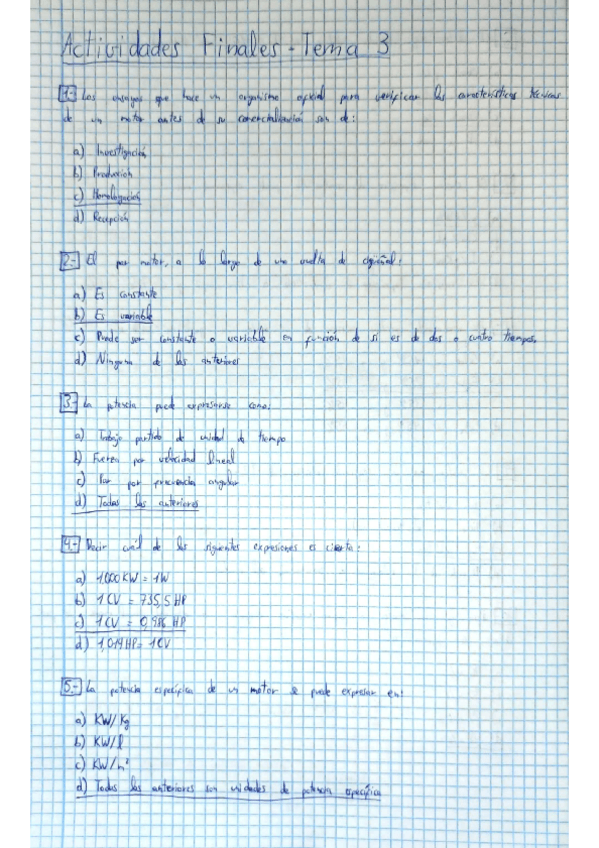 Actividades Finales - Tema 3
1.- Los ensayos que hace un organismo oficial para verificar las características técnicas
de un motor antes de su comercialización son de:
a) Investigación
b) Producción
c) Homologación
d) Recepción
2.- El par motor, a lo largo de una vuelta de cigüeñal:
a) Es constante
b) Es variable
c) Puede ser constante o variable en función de si es de dos o cuatro tiempos.
d) Ninguna de las anteriores
3.- La potencia puede expresarse como:
a) Trabajo partido de unidad de tiempo
b) Fuerza por velocidad lineal
c) Par por frecuencia angular
d) Todas las anteriores
4.- Decir cuál de las siguientes expresiones es cierta:
a) 1.000 KW = 1W
b) 1 CV = 735,5 HP
c) 1 CV = 0,986 HP
d) 1,014 HP = 1 CV
5.- La potencia específica de un motor se puede expresar en:
a) KW/Kg
b) KW/l
c) KW/
d) Todas las anteriores son unidades de potencia específica